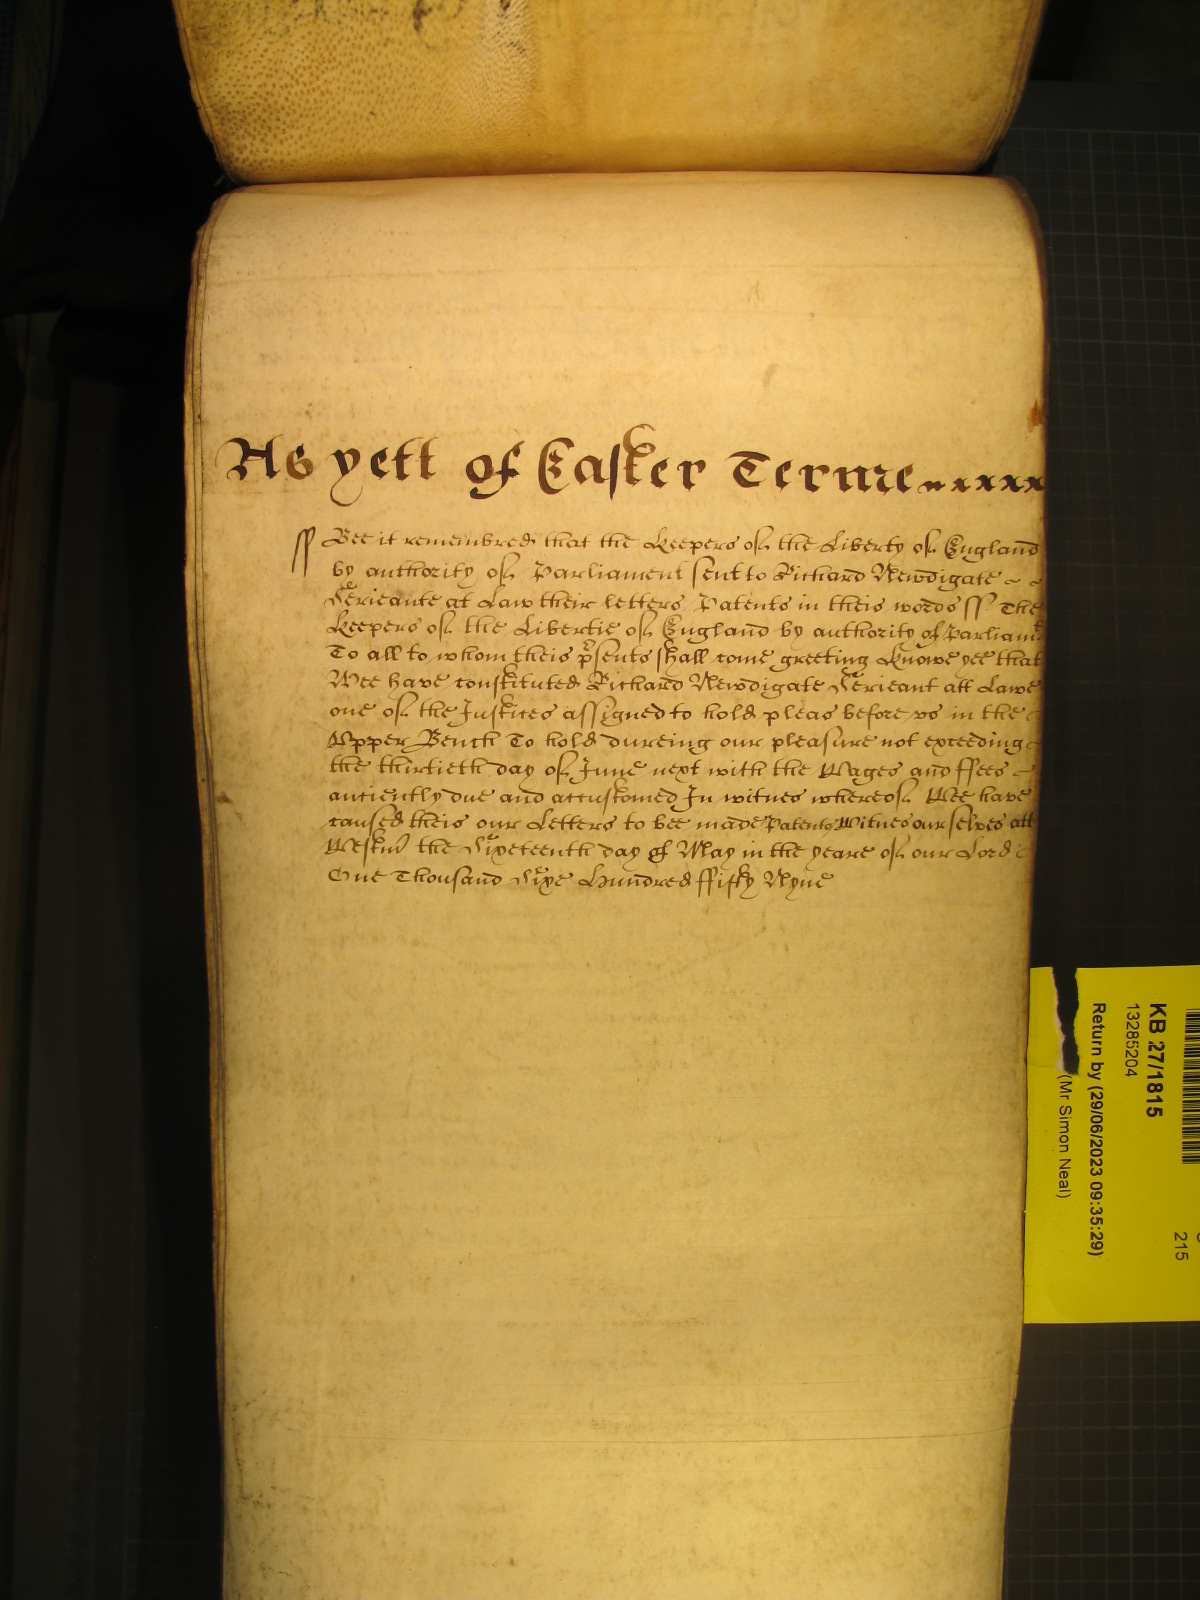 As yett of Easter Terme
ss Bee it remembred that the Keepers of the Liberty of England
by authority of Parliament sent to Richard Newdigate
Serieante at Law their letters Patents in theis words ss The
Keepers of the Libertie of England by authority of Parliamt
To all to whom theis psents shall come greeting Knowe yee that
Wee have constituted Richard Newdigate Serieant att Lawe
one of the Justices assigned to hold pleas before vs in the
Vpper Bench To hold dureing our pleasure not exceeding
the thirtieth day of June next with the Wages and ffees
antiently due and accustomed In witnes whereof Wee have
caused theis our Letters to bee made Patents Witnes our selves att
Westm the Sixeteenth day of May in the yeare of our Lord
One Thousand Sixe Hundred ffifty Nyne
KB 27/1815
13285204
Return by (29/06/2023 09:35:29)
(Mr Simon Neal)
215